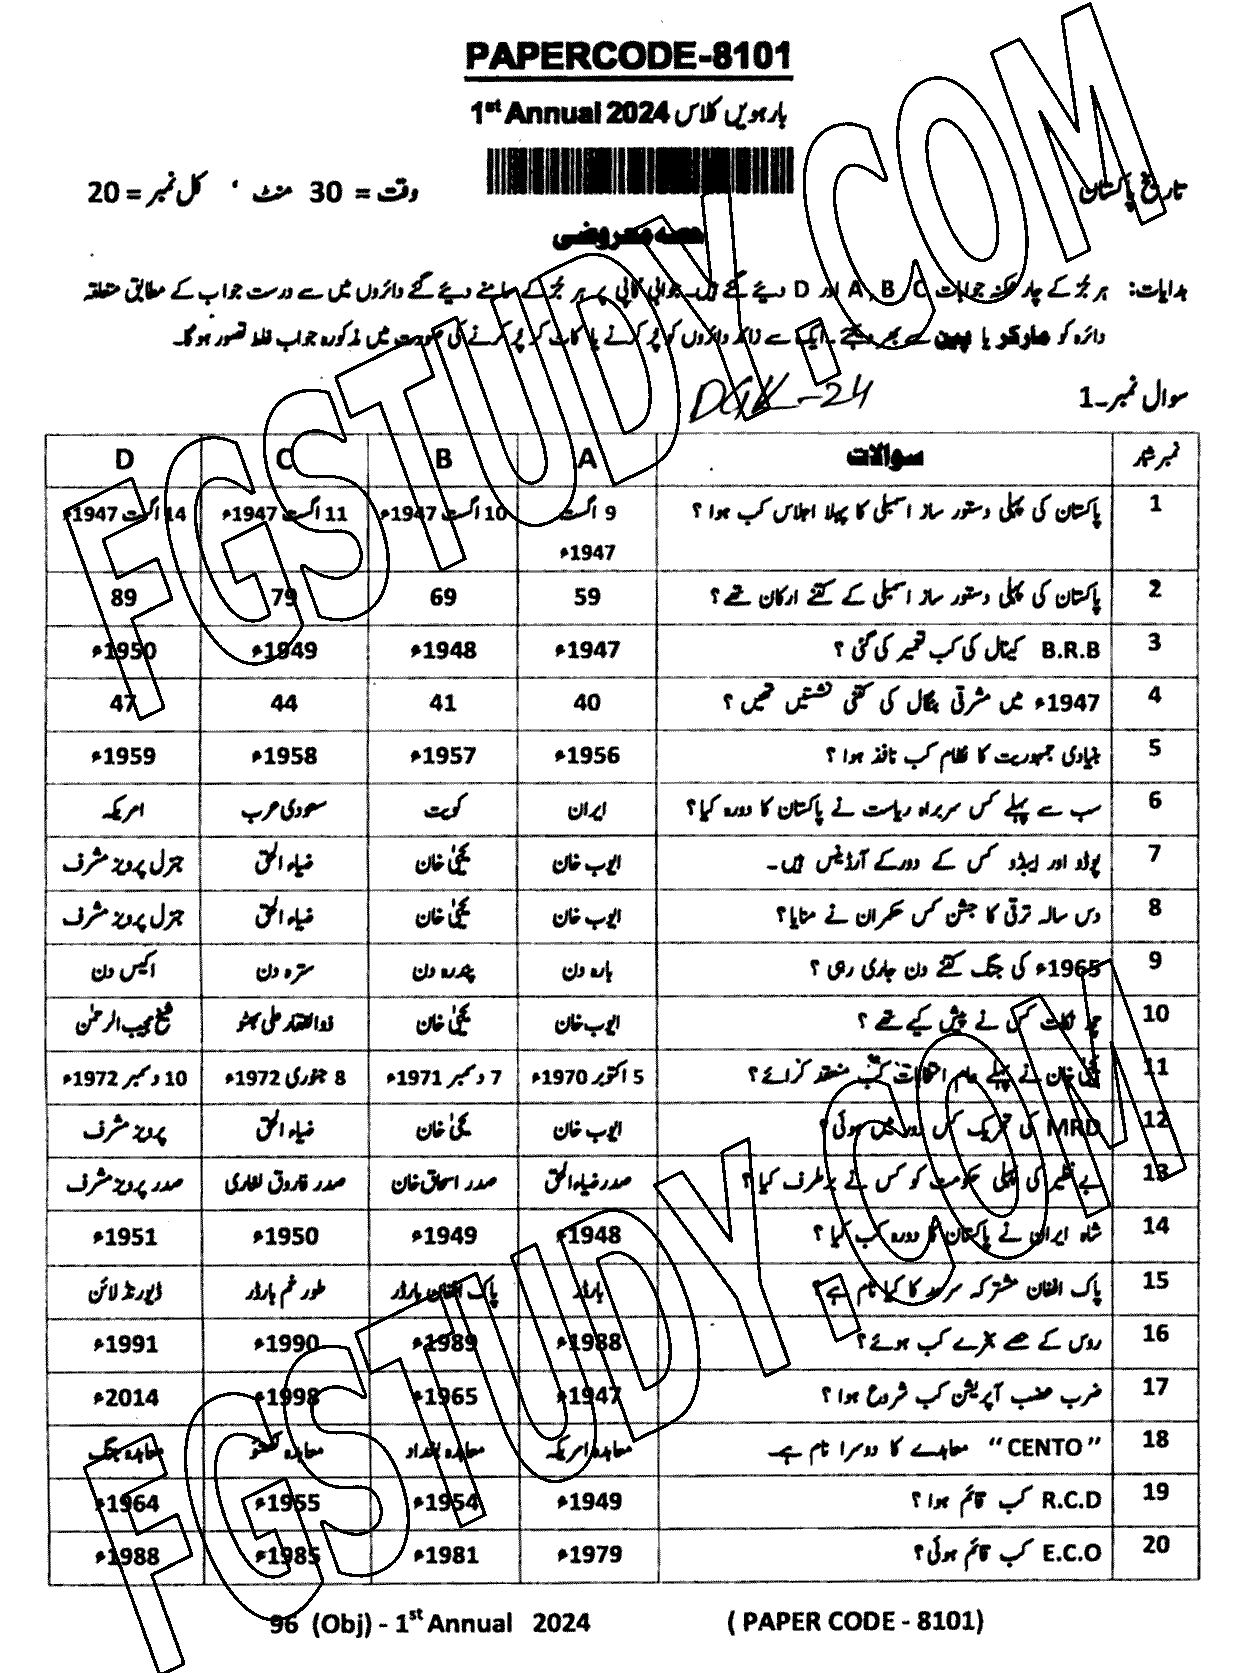 PAPERCODE-8101
بارہویں کلاس 1st Annual 2024
تاریخ پاکستان
وقت = 30 منٹ ' کل نمبر = 20
حصہ معروضی
ہدایات: ہر جُز کے چار ممکنہ جوابات A, B, C اور D دیے گئے ہیں۔ جوابی کاپی پر ہر جُز کے سامنے دیے گئے دائروں میں سے درست جواب کے مطابق متعلقہ
دائرہ کو مارکر یا پین سے بھر دیجئے۔ ایک سے زائد دائروں کو پُر کرنے یا کاٹ کر پُر کرنے کی صورت میں مذکورہ جواب غلط تصور ہوگا۔
DGK-24
سوال نمبر۔1
نمبر شمار سوالات A B C D
1 پاکستان کی پہلی دستور ساز اسمبلی کا پہلا اجلاس کب ہوا ؟ 9 اگست 1947ء 10 اگست 1947ء 11 اگست 1947ء 14 اگست 1947ء
2 پاکستان کی پہلی دستور ساز اسمبلی کے کتنے ارکان تھے؟ 59 69 79 89
3 B.R.B کینال کی کب تعمیر کی گئی ؟ 1947ء 1948ء 1949ء 1950ء
4 1947ء میں مشرقی بنگال کی کتنی نشستیں تھیں ؟ 40 41 44 47
5 بنیادی جمہوریت کا نظام کب نافذ ہوا ؟ 1956ء 1957ء 1958ء 1959ء
6 سب سے پہلے کس سربراہ ریاست نے پاکستان کا دورہ کیا؟ ایران کویت سعودی عرب امریکہ
7 پوڈو اور ایبڈو کس کے دور کے آرڈیننس ہیں۔ ایوب خان یحییٰ خان ضیاء الحق جنرل پرویز مشرف
8 دس سالہ ترقی کا جشن کس حکمران نے منایا؟ ایوب خان یحییٰ خان ضیاء الحق جنرل پرویز مشرف
9 1965ء کی جنگ کتنے دن جاری رہی ؟ بارہ دن پندرہ دن سترہ دن اکیس دن
10 چھ نکات کس نے پیش کیے تھے ؟ ایوب خان یحییٰ خان ذوالفقار علی بھٹو شیخ مجیب الرحمٰن
11 یحییٰ خان نے پہلے عام انتخابات کب منعقد کرائے؟ 5 اکتوبر 1970ء 7 دسمبر 1971ء 8 جنوری 1972ء 10 دسمبر 1972ء
12 MRD کی تحریک کس دور میں ہوئی؟ ایوب خان یحییٰ خان ضیاء الحق پرویز مشرف
13 بے نظیر کی پہلی حکومت کو کس نے برطرف کیا ؟ صدر ضیاء الحق صدر اسحاق خان صدر فاروق لغاری صدر پرویز مشرف
14 شاہ ایران نے پاکستان کا دورہ کب کیا ؟ 1948ء 1949ء 1950ء 1951ء
15 پاک افغان مشترکہ سرحد کا کیا نام ہے؟ بارڈر پاک افغان بارڈر طورخم بارڈر ڈیورنڈ لائن
16 روس کے حصے بخرے کب ہوئے؟ 1988ء 1989ء 1990ء 1991ء
17 ضرب عضب آپریشن کب شروع ہوا ؟ 1947ء 1965ء 1998ء 2014ء
18 "CENTO" معاہدے کا دوسرا نام ہے۔ معاہدہ امریکہ معاہدہ بغداد معاہدہ لکھنؤ معاہدہ جنگ
19 R.C.D کب قائم ہوا ؟ 1949ء 1954ء 1955ء 1964ء
20 E.C.O کب قائم ہوئی؟ 1979ء 1981ء 1985ء 1988ء
96 (Obj) - 1st Annual 2024 ( PAPER CODE - 8101)
FGSTUDY.COM
FGSTUDY.COM